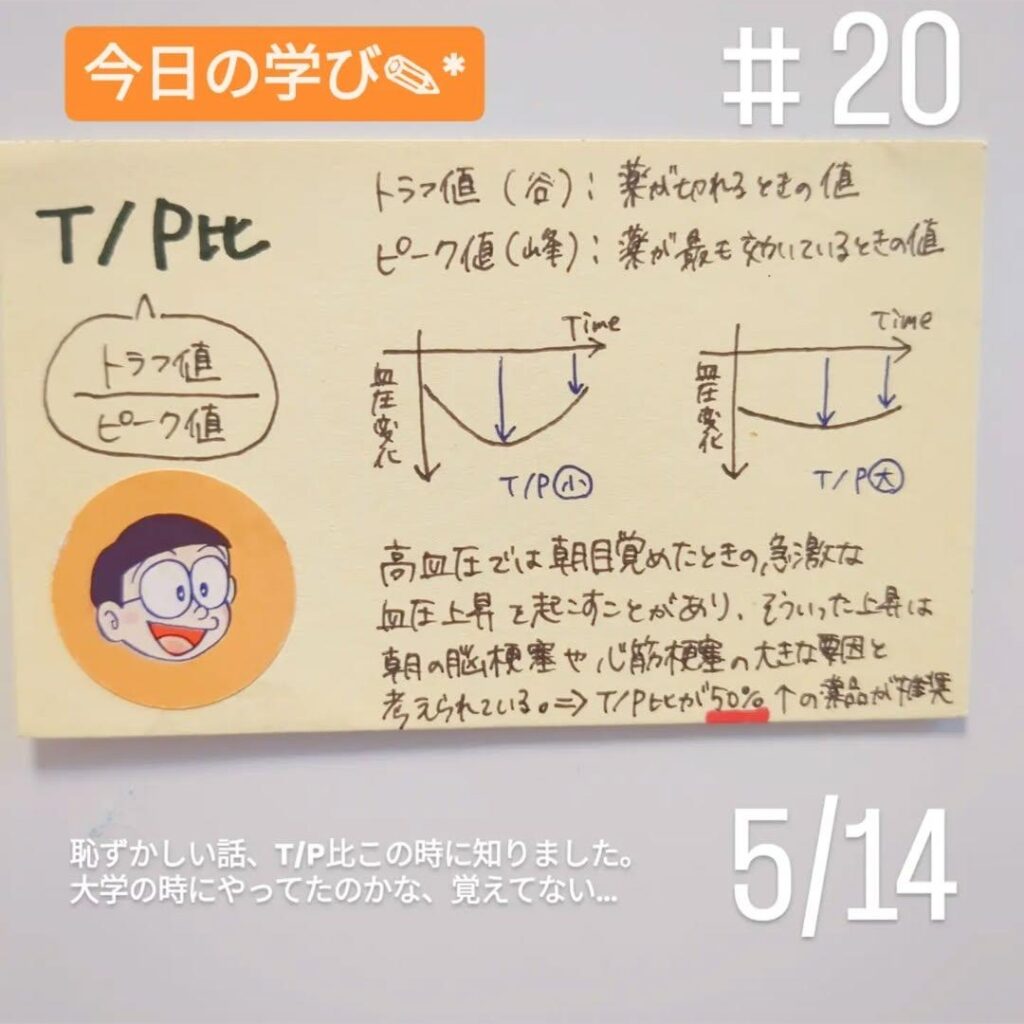 今日の学び✎*
#20
T/P比
トラフ値
ピーク値
トラフ値（谷）：薬が切れるときの値
ピーク値（峰）：薬が最も効いているときの値
Time
血圧変化
T/P小
Time
血圧変化
T/P大
高血圧では朝目覚めたときの急激な
血圧上昇を起こすことがあり、そういった上昇は
朝の脳梗塞や心筋梗塞の大きな要因と
考えられている。⇒T/P比が50%↑の薬品が推奨
恥ずかしい話、T/P比この時に知りました。
大学の時にやってたのかな、覚えてない...
5/14